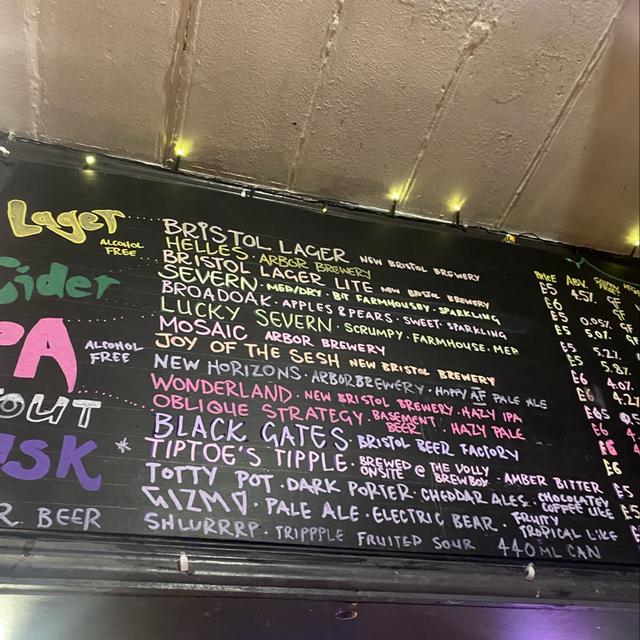 Lager
ALCOHOL FREE
BRISTOL LAGER NEW BRISTOL BREWERY
HELLES · ARBOR BREWERY
BRISTOL LAGER LITE NEW BRISTOL BREWERY
Cider
SEVERN · MED/DRY · BIT FARMHOUSEY · SPARKLING
BROADOAK · APPLES & PEARS · SWEET · SPARKLING
LUCKY SEVERN · SCRUMPY · FARMHOUSE · MED
PA
ALCOHOL FREE
MOSAIC ARBOR BREWERY
JOY OF THE SESH NEW BRISTOL BREWERY
NEW HORIZONS · ARBOR BREWERY · HOPPY AF PALE ALE
WONDERLAND · NEW BRISTOL BREWERY · HAZY IPA
OBLIQUE STRATEGY · BASEMENT BEER · HAZY PALE
OUT
BLACK GATES · BRISTOL BEER FACTORY
ASK
* TIPTOE'S TIPPLE · BREWED ON SITE @ THE VOLLY BREWBOY · AMBER BITTER
TOTTY POT · DARK PORTER · CHEDDAR ALES · CHOCOLATEY COFFEE LIKE
GIZMO · PALE ALE · ELECTRIC BEAR · FRUITY TROPICAL LIKE
R BEER
SHLURRRP · TRIPPPLE FRUITED SOUR 440ML CAN
PRICE ABV
£5 4.5% GF
£6
£5 0.05% GF
£5 5.0% GF
£5 5.2%
£5 5.8%
£6 4.0%
£6
£6
£6
£6
£6
£5
£5
£5